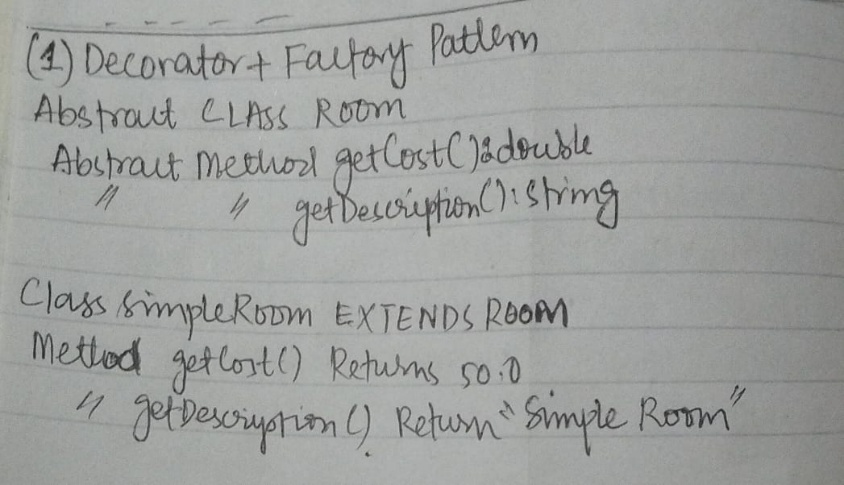 (1) Decorator + Factory Pattern
Abstract CLASS ROOM
Abstract Method getCost():double
" " getDescription():string
Class SimpleRoom EXTENDS ROOM
Method getCost() Returns 50.0
" getDescription() Return "Simple Room"